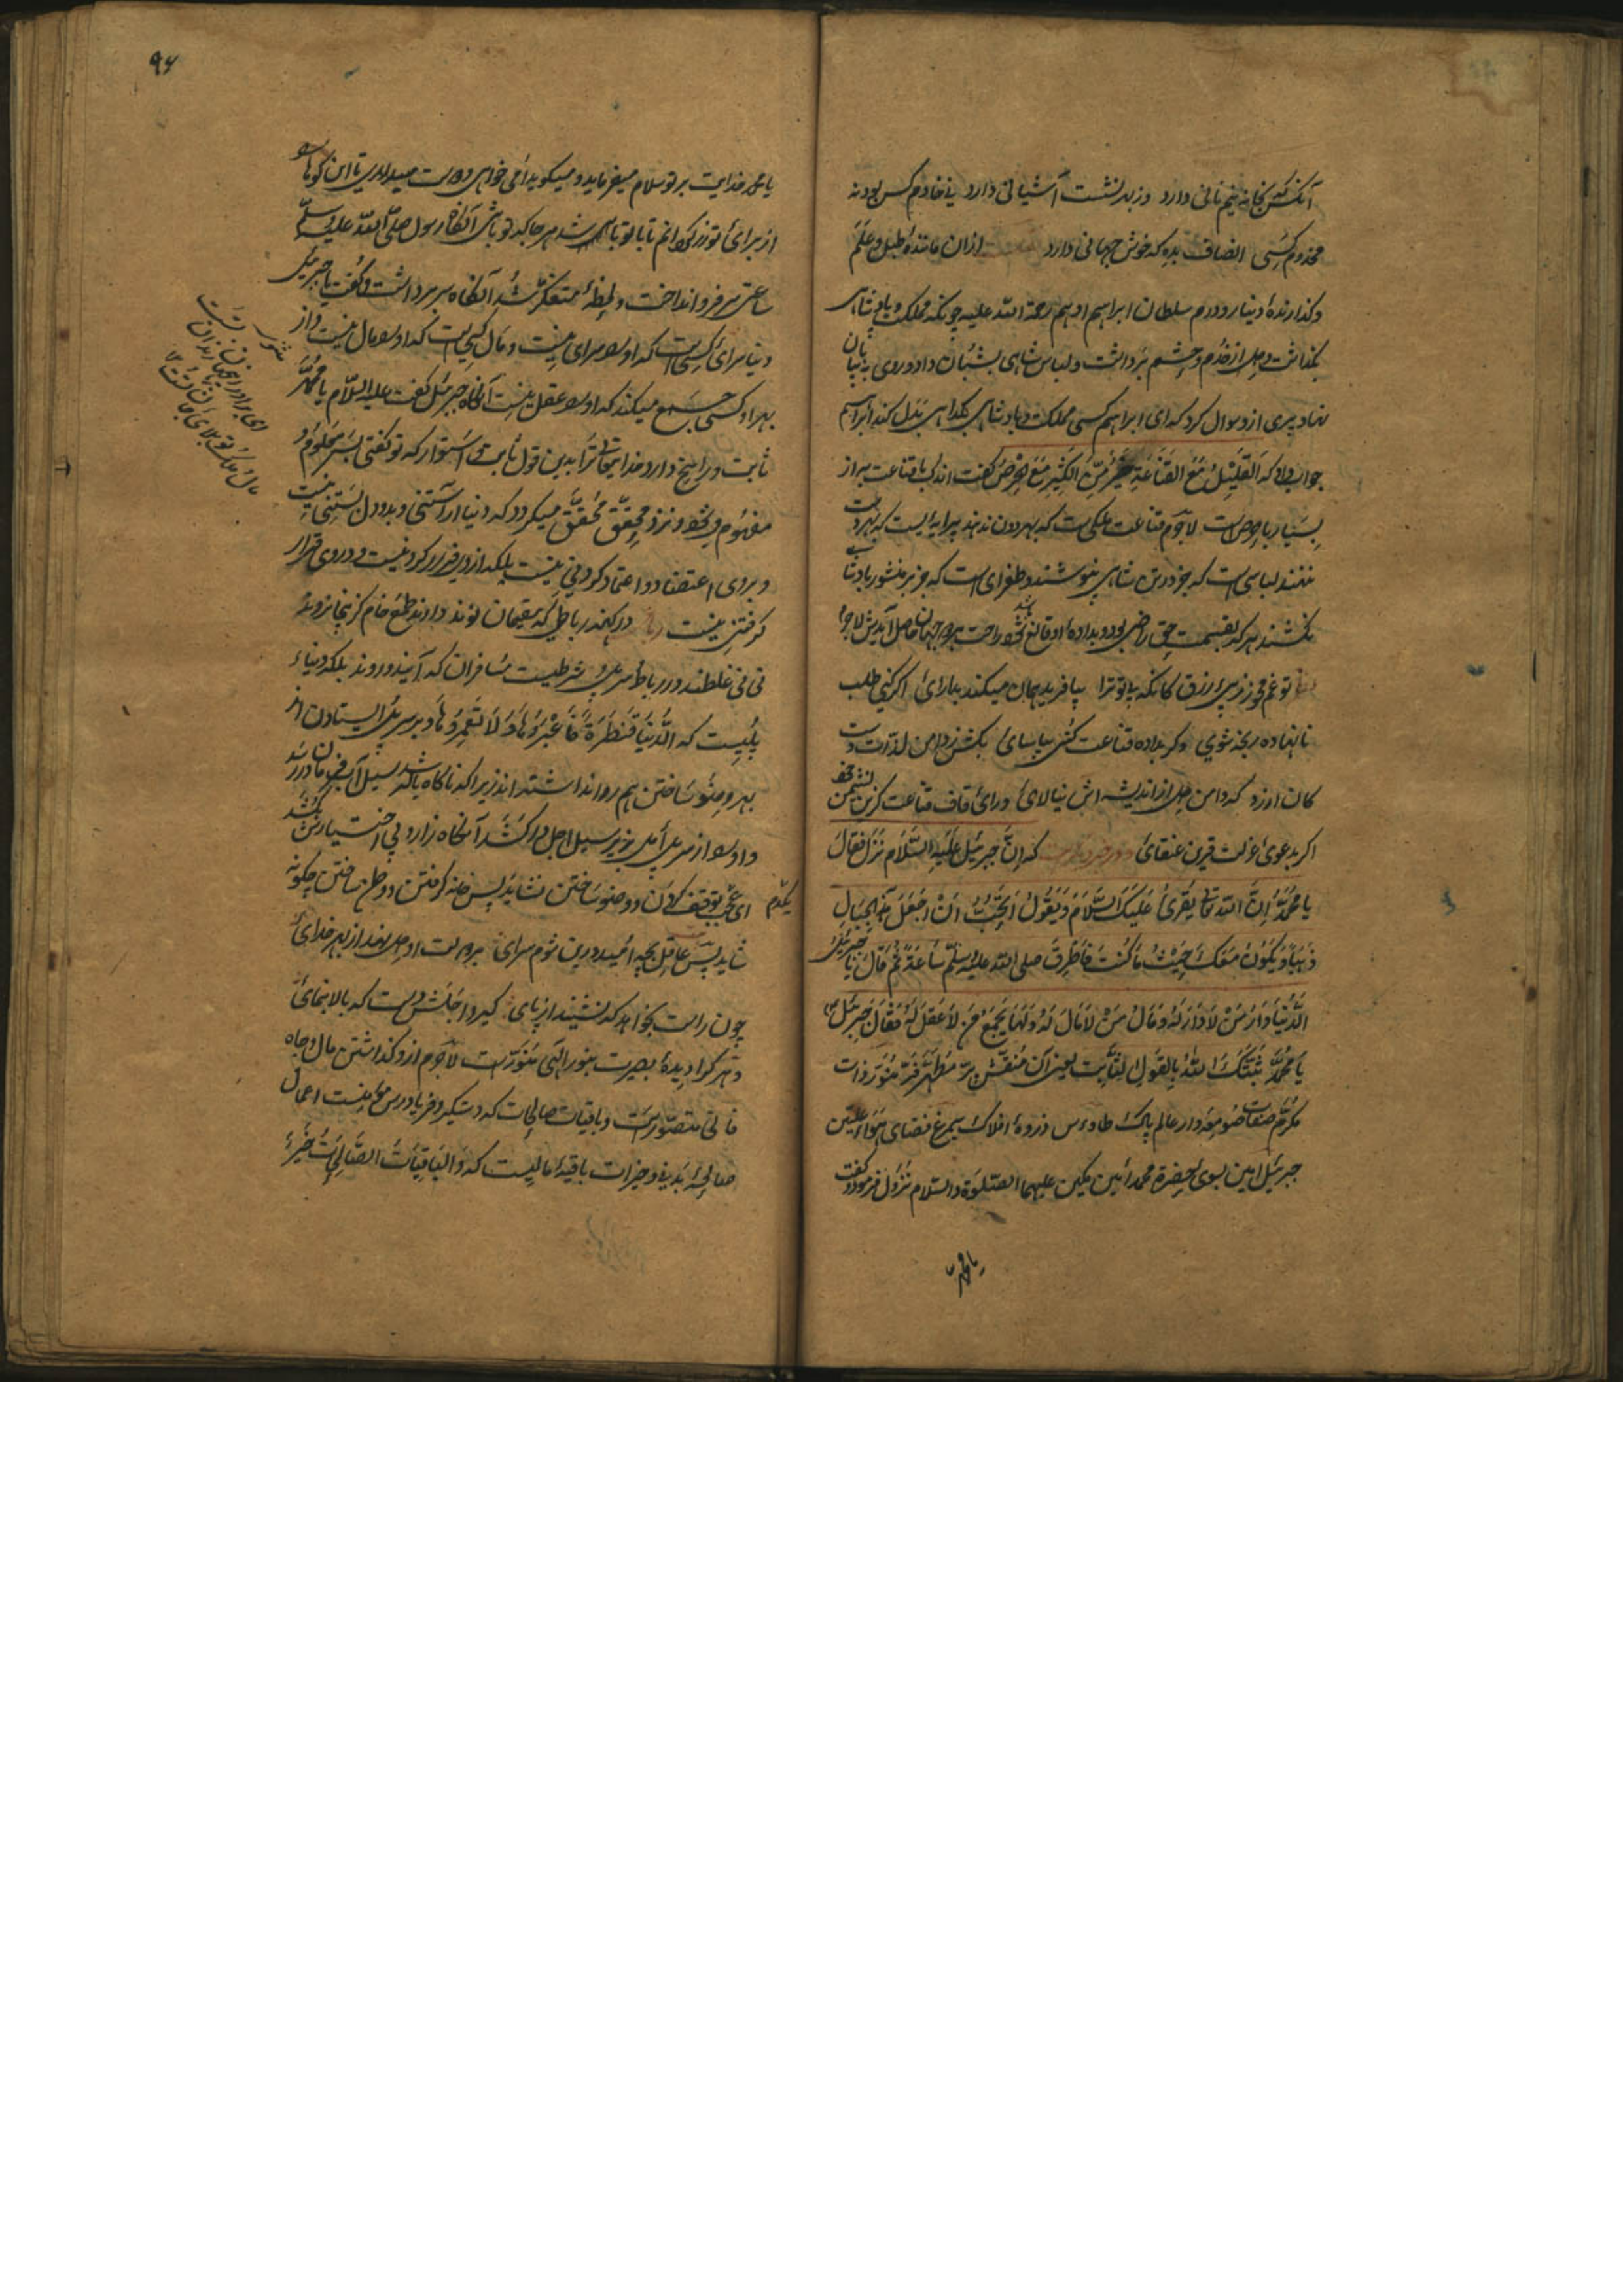 آنکس که بخانه نیم نانی دارد وز بهر نشست آشیانی دارد نی خادم کس بود نه
مخدوم کسی انصاف بده که خوش جهانی دارد ازان ماننده طبل و علم
و گذارنده دینار و درم سلطان ابراهیم ادهم رحمة الله علیه چونکه مملکت و پادشاهی
بگذاشت و دل از خدم و حشم برداشت و لباس شاهی بشبان داد و روی به بیابان
نهاد پیری ازو سوال کرد که ای ابراهیم کسی مملکت و پادشاهی بگدایی بدل کند ابراهیم
جواب داد که اَلقَلِیلُ مَعَ القَنَاعَةِ خَیرٌ مِنَ الکَثِیرِ مَعَ الحِرصِ گفت اندک با قناعت به از
بسیار با حرص است لاجرم قناعت ملکی است که بهر دون ندهند پیرایه ایست که بهر دست
ننهند لباسی است که جز درین شاهی نپوشند و طغرای است که جز بر منشور باد شاه
نکشند هر که بقسمت حق راضی بود و بداده او قانع شود راحت هر دو جهان حاصل آیدش لاجرم
تو غم مخور ز پی رزق کانکه تو ترا بیافرید همان میکند بدارای اگر کنی طلب
نانهاده رنجه شوی وگر بداده قناعت کنی بیاسای بکش زدامن لذات دست
کان ارزد که دامن دل از اندیشه اش نیالای ورای قاف قناعت گزین نشیمن خود
اگر بدعوی عزلت قرین عنقای که اِنَّ جبرئیل عَلَیهِ السَّلَام نَزَلَ فَقَالَ
یا مُحَمَّدُ اِنَّ الله تعالی یَقرَئُ عَلَیکَ السَّلَامَ وَ یَقُولُ اَتُحِبُّ اَن اَجعَلَ هَذِهِ الجِبَالِ
ذَهَبًا وَ یَکُونُ مَعَکَ حَیثُ مَا کُنتَ فَاَطرَقَ صلی الله علیه وسلم سَاعَةً ثُمَّ قَالَ یَا جبرئیل
اَلدُّنیَا دَارُ مَن لَا دَارَ لَهُ وَ مَالُ مَن لَا مَالَ لَهُ وَ لَهَا یَجمَعُ مَن لَا عَقلَ لَهُ فَقَالَ جِبرَئیل
یَا مُحَمَّدُ ثَبَّتَکَ اللهُ بِالقَولِ الثَّابِت یعنی آن
مکرم صفات صومعه دار عالم پاک طاوس ذروه افلاک سیمرغ فضای هوا علیین
جبرئیل امین بسوی حضرة محمد امین مکین علیهما الصلوة والسلام نزول فرمود و گفت
یا محمد
۹۶
یا محمد خدایت بر تو سلام میفرماید و میگوید خواهی و دوست میداری تا این کوها
از برای تو زر گردانم تا با تو باشد هر جا که تو باشی آنگاه رسول صلی الله علیه وسلم
ساعتی سر فرو انداخت و لحظهٔ متفکر شد آنگاه سر برداشت و گفت یا جبرئیل
دنیا سرای کسی است که او را سرای نیست و مال کسی است که او را مال نیست و از
بهر او کسی جمع میکند که او را عقل نیست آنگاه جبرئیل گفت علیه السلام یا محمد
ثابت و راسخ دارد خدایتعالی ترا بدین قول ثابت و استوار که تو گفتی بس معلوم و
مفهوم میشود و نزد محقق محقق میگردد که دنیا و بدو دل بستنی نیست
و بروی اعتضاد و اعتماد کردنی نیست بلکه ازو فرار کردنیست و در وی قرار
گرفتنی نیست در کهنه رباطی که مقیمان نوند دارند طمع خام
نی نی غلطند در رباط سر پل شرطیست مسافران که آیند و روند بلکه دنیا
پلیست که اَلدُّنیَا قَنطَرَةٌ فَاعبُرُوهَا وَ لَا تَعمُرُوهَا و بر سر پل ایستادن از
بهر وضو ساختن هم روا نداشته اند زیرا که ناگاه باشد سیل آب فرمان در رسد
و او را از سر پل امل بزیر سیل اجل درکشد آنگاه زار و بی اختیارش بکشد
ای عجب توقف کردن و وضو ساختن نشاید پس خانه گرفتن و وطن ساختن چگونه
یکدم
شاید پس عاقل بچه امید درین شوم سرای بر دولت او دل نهد از بهر خدای
چون راست بخواهد که نشیند از پای گیرد اجلش دست که بالا بنمای
و هر کرا دیدهٔ بصیرت بنور الهی منورست لاجرم ازو گذاشتن مال و جاه
فانی متصور است و باقیات صالحات که دستگیر و فریادرس نیست اعمال
صالحه بدنی و خیرات باقیه مالیست که وَ البَاقِیَاتُ الصَّالِحَاتُ خَیرٌ
شعر